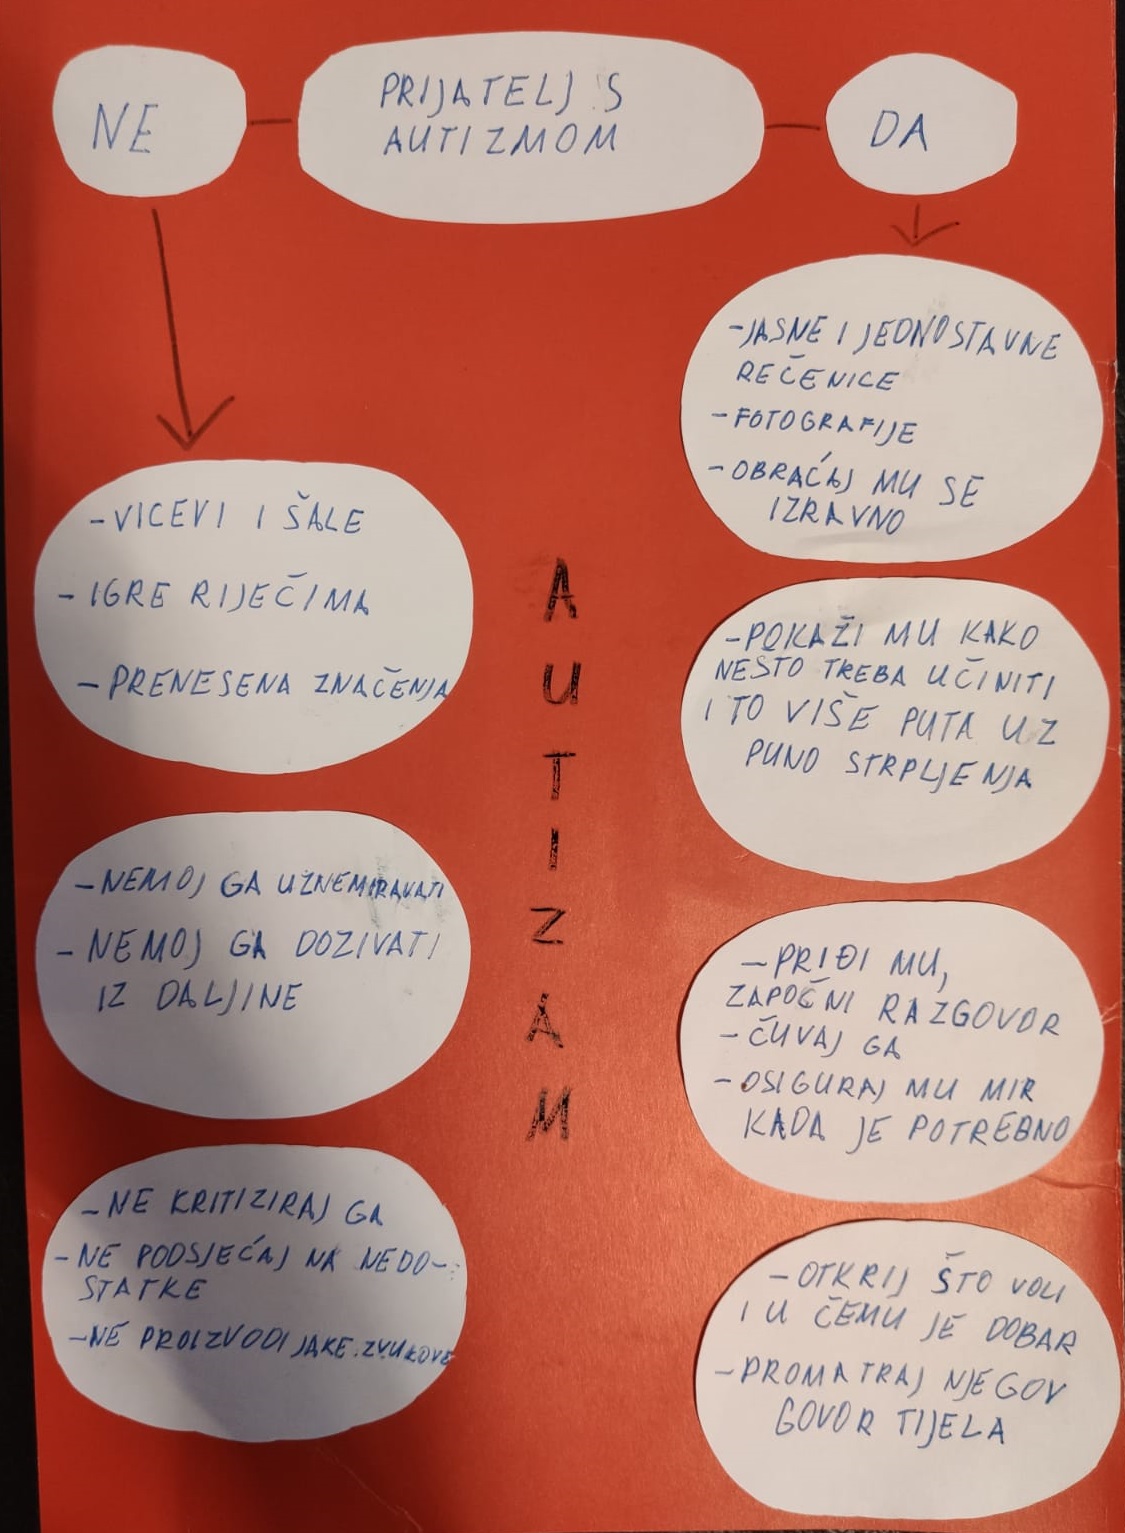 NE
PRIJATELJ S
AUTIZMOM
DA
-VICEVI I ŠALE
- IGRE RIJEČIMA
- PRENESENA ZNAČENJA
-NEMOJ GA UZNEMIRAVATI
- NEMOJ GA DOZIVATI
IZ DALJINE
-NE KRITIZIRAJ GA
-NE PODSJEĆAJ NA NEDO-
STATKE
-NE PROIZVODI JAKE ZVUKOVE
AUTIZAM
-JASNE I JEDNOSTAVNE
REČENICE
-FOTOGRAFIJE
-OBRAĆAJ MU SE
IZRAVNO
-POKAŽI MU KAKO
NEŠTO TREBA UČINITI
I TO VIŠE PUTA UZ
PUNO STRPLJENJA
-PRIĐI MU,
ZAPOČNI RAZGOVOR
-ČUVAJ GA
-OSIGURAJ MU MIR
KADA JE POTREBNO
-OTKRIJ ŠTO VOLI
I U ČEMU JE DOBAR
-PROMATRAJ NJEGOV
GOVOR TIJELA